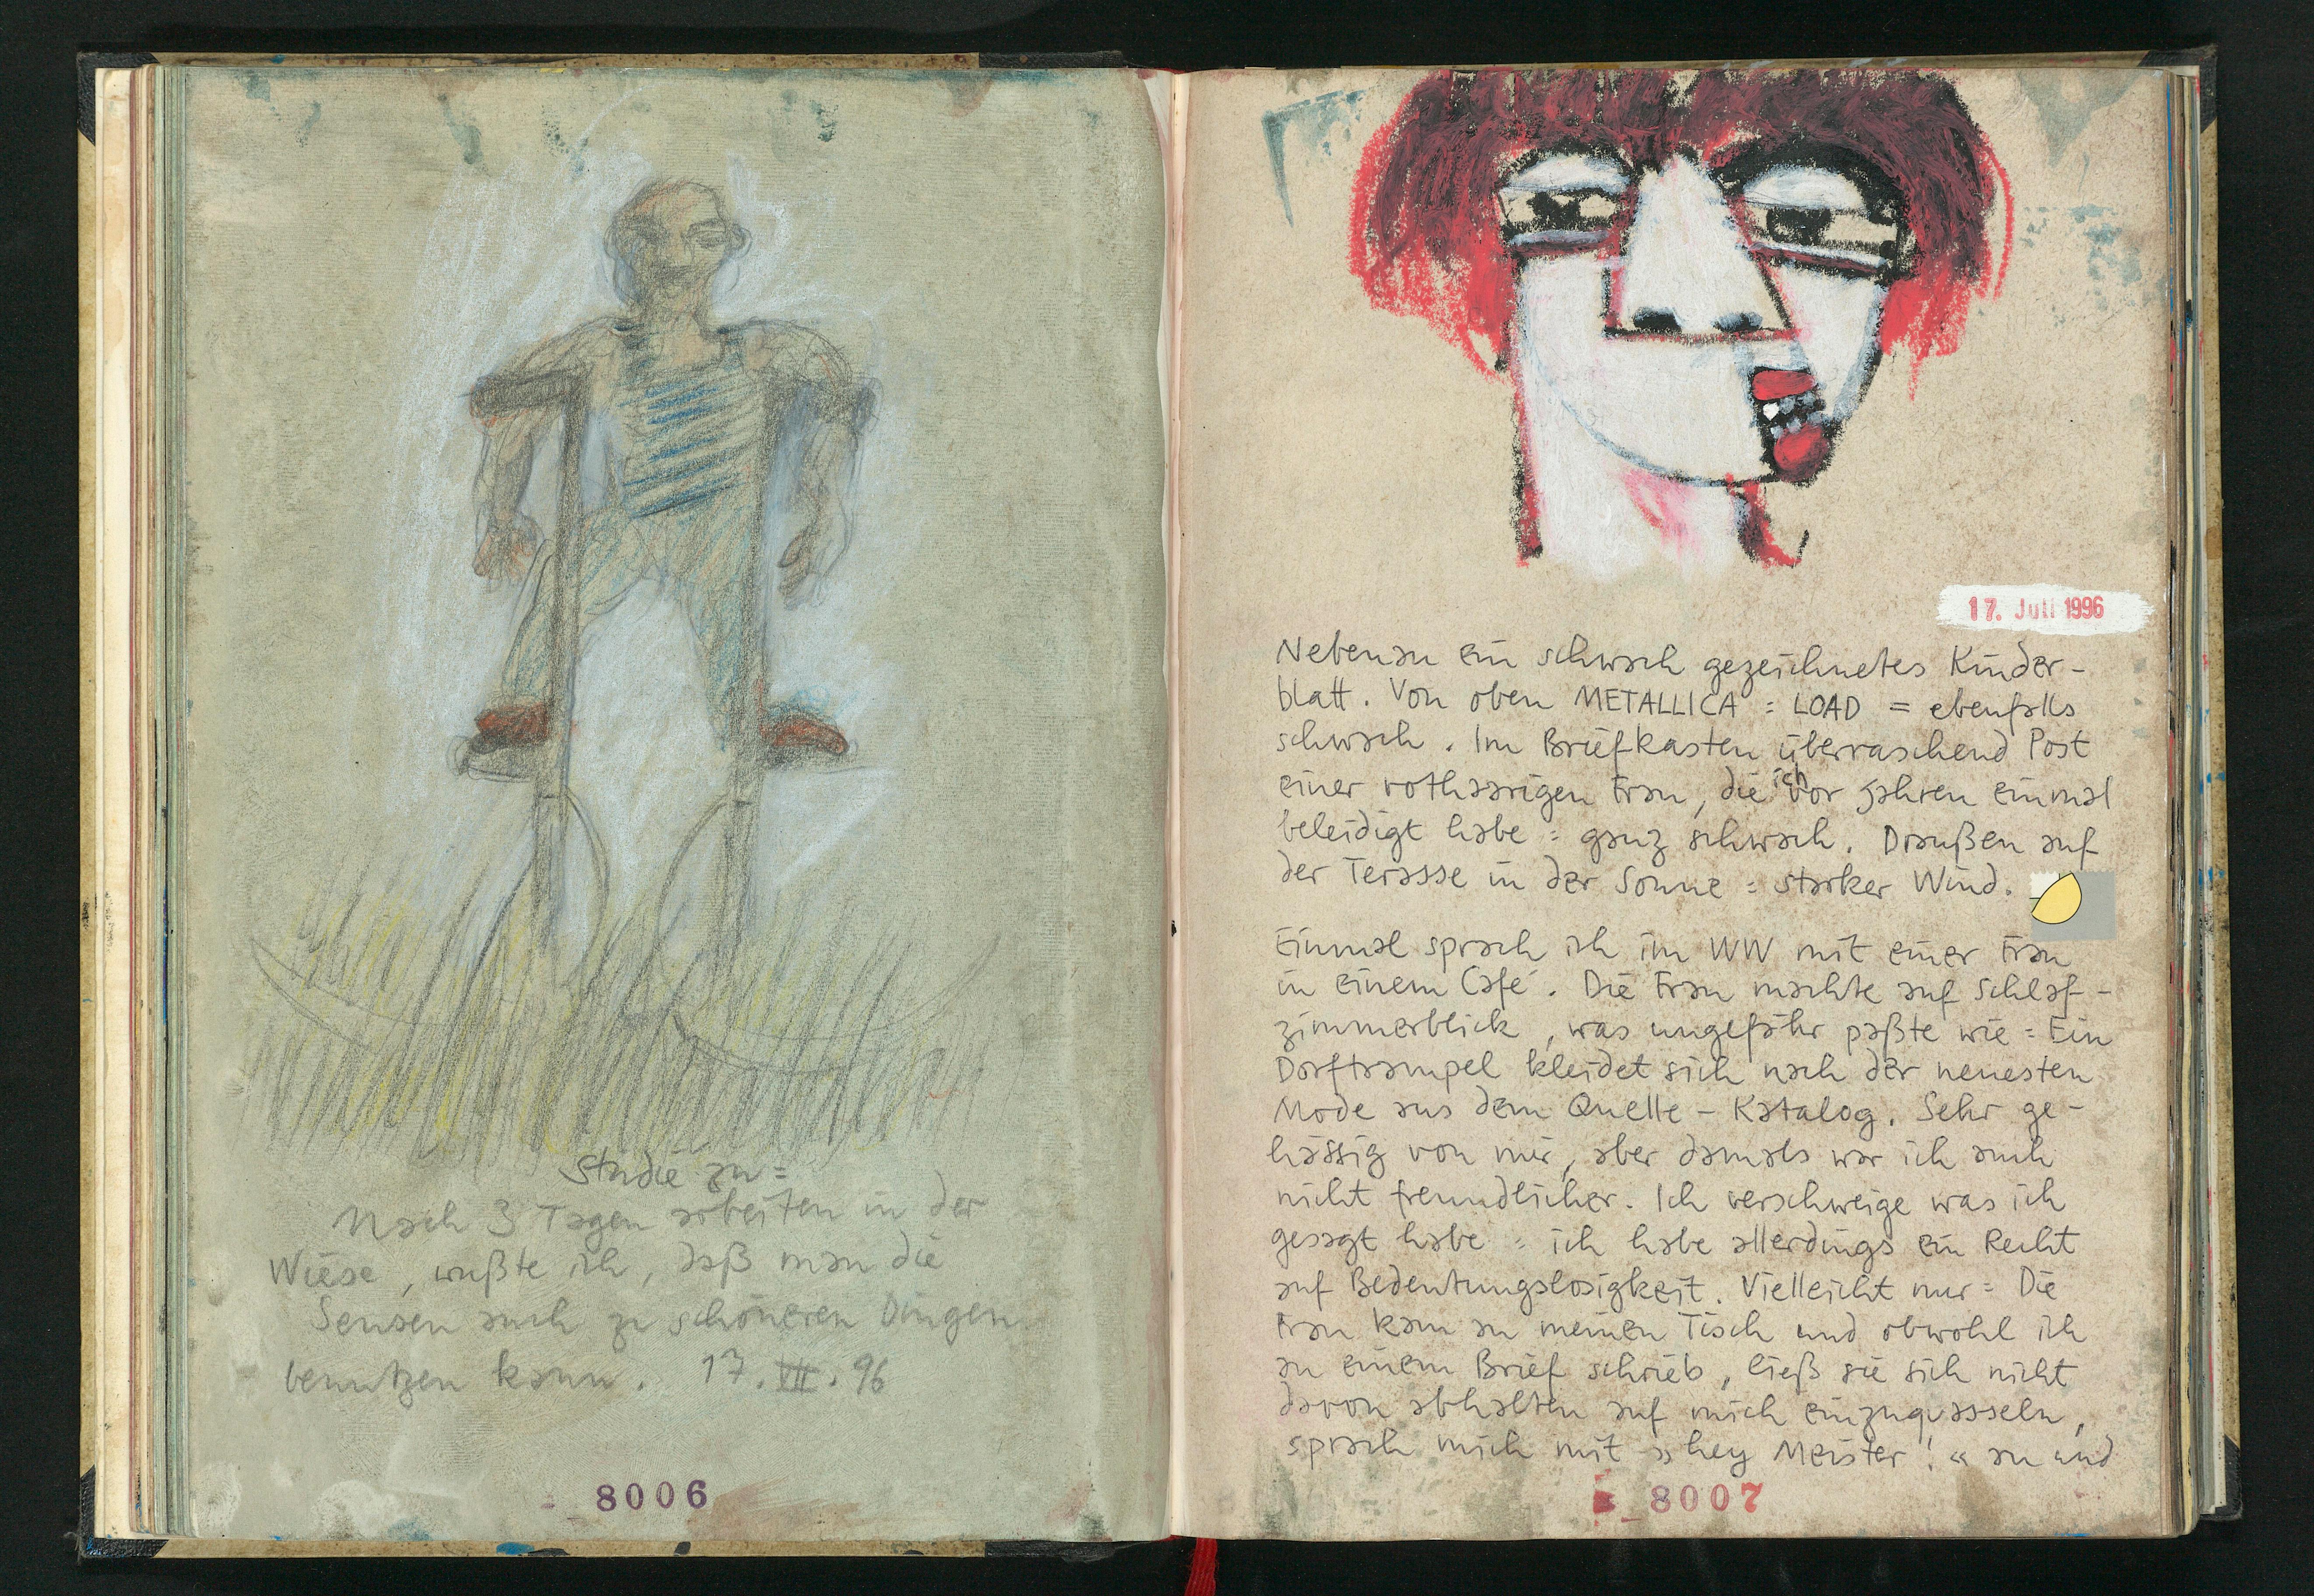 Studie zu =
Nach 3 Tagen arbeiten in der
Wiese, wußte ich, daß man die
Sensen auch zu schöneren Dingen
benutzen kann. 17. VII. 96
8006
17. Juli 1996
Nebenan ein schwach gezeichnetes Kinder-
blatt. Von oben METALLICA = LOAD = ebenfalls
schwach. Im Briefkasten überraschend Post
einer rothaarigen Frau, die ich vor Jahren einmal
beleidigt habe = ganz schwach. Draußen auf
der Terasse in der Sonne = starker Wind.
Einmal sprach ich im WW mit einer Frau
in einem Café. Die Frau machte auf Schlaf-
zimmerblick, was ungefähr paßte wie = Ein
Dorftrampel kleidet sich nach der neuesten
Mode aus dem Quelle - Katalog. Sehr ge-
hässig von mir, aber damals war ich auch
nicht freundlicher. Ich verschweige was ich
gesagt habe = ich habe allerdings ein Recht
auf Bedeutungslosigkeit. Vielleicht nur = Die
Frau kam an meinen Tisch und obwohl ich
an einem Brief schrieb, ließ sie sich nicht
davon abhalten auf mich einzuquasseln,
sprach mich mit »hey Meister!« an und
8007